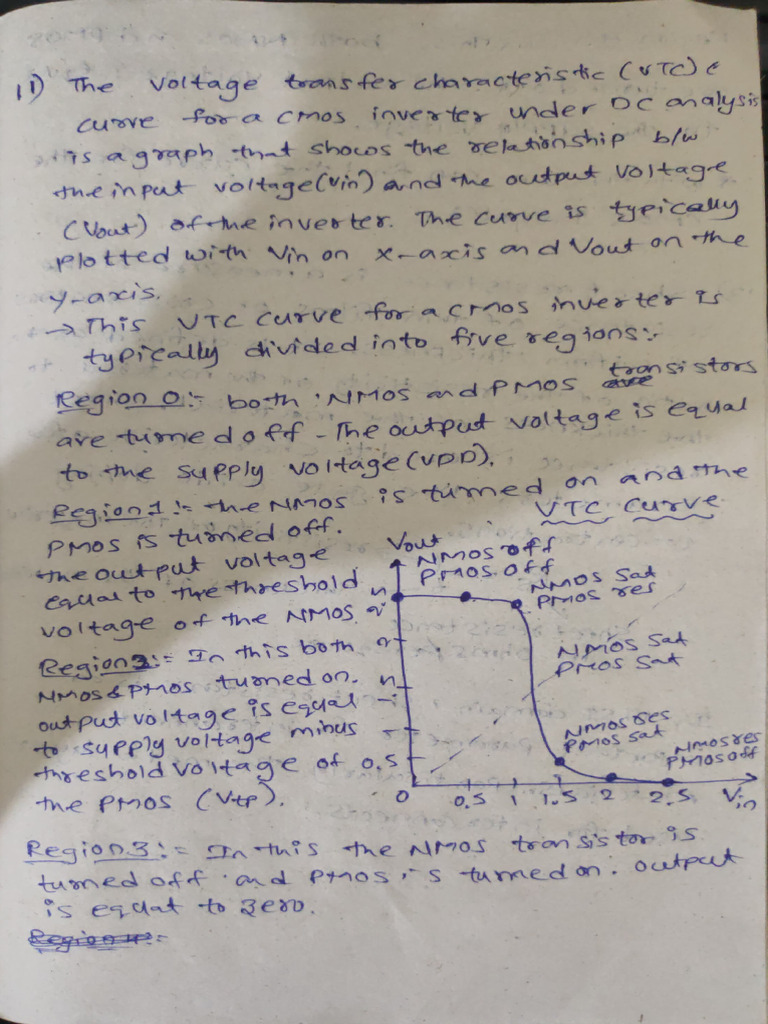 11) The voltage transfer characteristic (VTC)
curve for a CMOS inverter under DC analysis
is a graph that shows the relationship b/w
the input voltage (Vin) and the output voltage
(Vout) of the inverter. The curve is typically
plotted with Vin on x-axis and Vout on the
y-axis.
→ This VTC curve for a CMOS inverter is
typically divided into five regions:-
Region 0:- both NMOS and PMOS transistors
are turned off - The output voltage is equal
to the supply voltage (VDD).
Region 1:- the NMOS is turned on and the
PMOS is turned off.
the output voltage
equal to the threshold
voltage of the NMOS.
Region 2:- In this both
NMOS & PMOS turned on.
output voltage is equal
to supply voltage minus
threshold voltage of
the PMOS (Vtp).
VTC Curve
Vout
NMOS off
PMOS off
NMOS sat
PMOS res
NMOS sat
PMOS sat
NMOS res
PMOS sat
NMOS res
PMOS off
0.5
0 0.5 1 1.5 2 2.5 Vin
Region 3:- In this the NMOS transistor is
turned off and PMOS is turned on. output
is equal to zero.